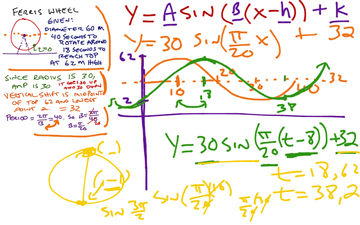 FERRIS WHEEL
GIVEN:
DIAMETER 60 M
40 SECONDS TO
ROTATE AROUND
18 SECONDS TO
REACH TOP
AT 62 M HIGH
SINCE RADIUS IS 30,
AMP IS 30
VERTICAL SHIFT IS MIDPOINT
OF TOP 62 AND LOWEST
POINT 2 = 32
PERIOD = 2π = 40, SO
B = π/20
Y = A SIN (B(x-h)) + K
Y = 30 SIN (π/20 x) + 32
62
2
10
18
20
30
38
40
32
Y = 30 SIN (π/20 (t-8)) + 32
t = 18, 62
t = 38, 2
SIN 3π/2
SIN (π/20